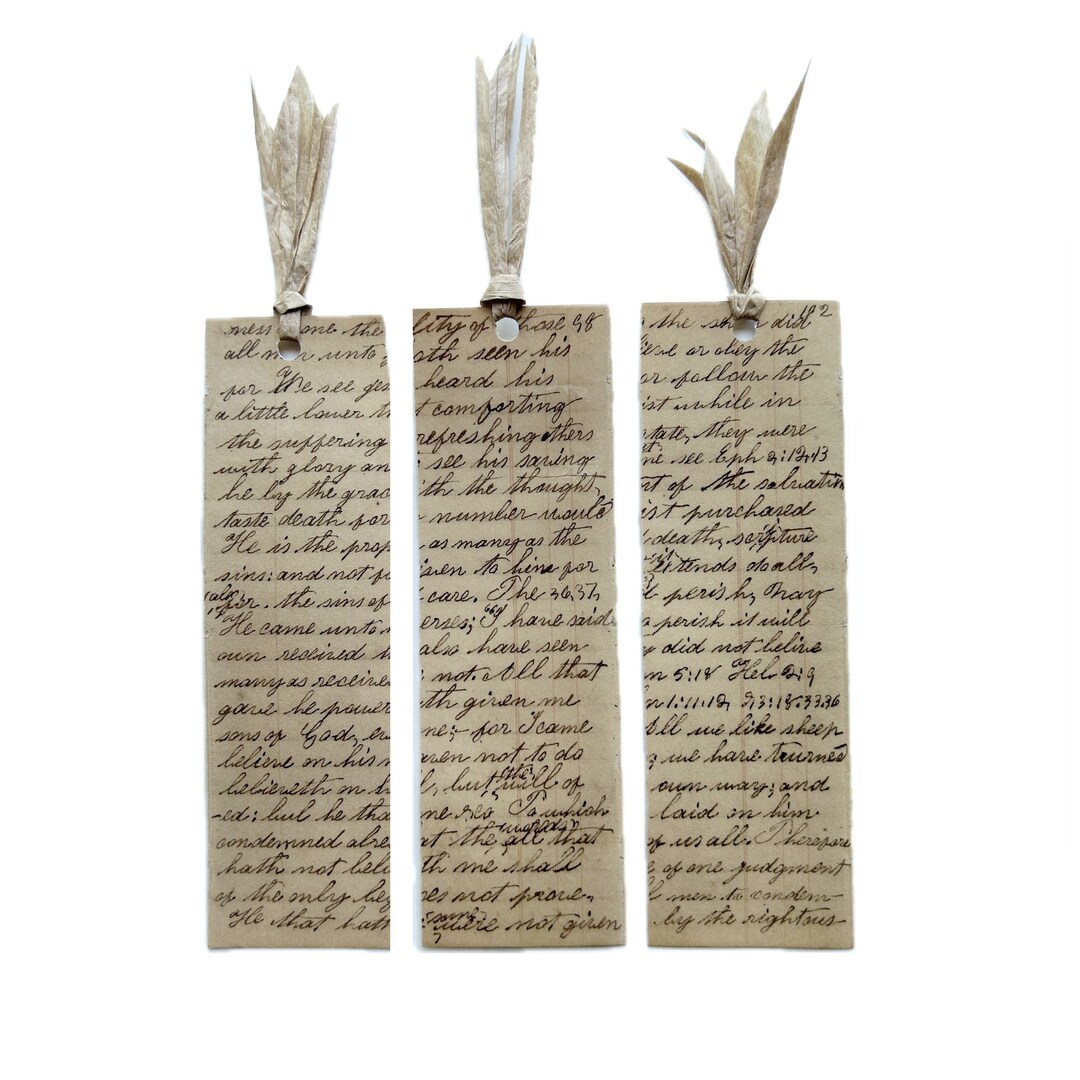 ness come the
all men unto
for We see jes
a little lower th
the suffering
with glory an
he by the grac
taste death for
He is the prop
sins: and not fo
also
for. the sins of
He came unto
own received
many as receive
gave he power
sons of God, ev
believe on his n
believeth on h
-ed; but he tha
condemned alre
hath not beli
of the only be
He that hath
lity of those 98
ath seen his
heard his
t comforting
refreshing others
see his saving
ith the thought,
number would
as many as the
iven to him for
care. The 36,37,
erses; I have said
also have seen
not. All that
th given me
me; for I came
aven not to do
the
l, but will of
me To which
words
at the all that
th me shall
oes not prove,
some
were not given
102
the did
lieve or obey the
or follow the
ist while in
state, they were
me see Eph 2:12,13
rt of the salvation
ist purchased
death, scripture
tends do all,
perish, May
perish it will
did not belive
n 5:18 Heb. 2:9
n 1:11,12, 3:18.33.36
All we like sheep
we have turned
own way; and
laid on him
of us all. Therefore
of one judgment
l men to condem-
by the rightous